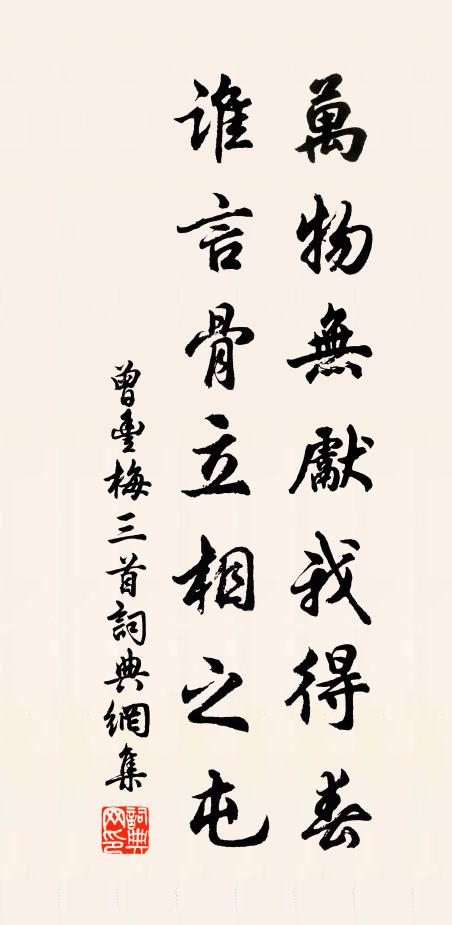 萬物無獻我得春
誰言骨立相之屯
曾豐梅三首詞典網集
詞典網印